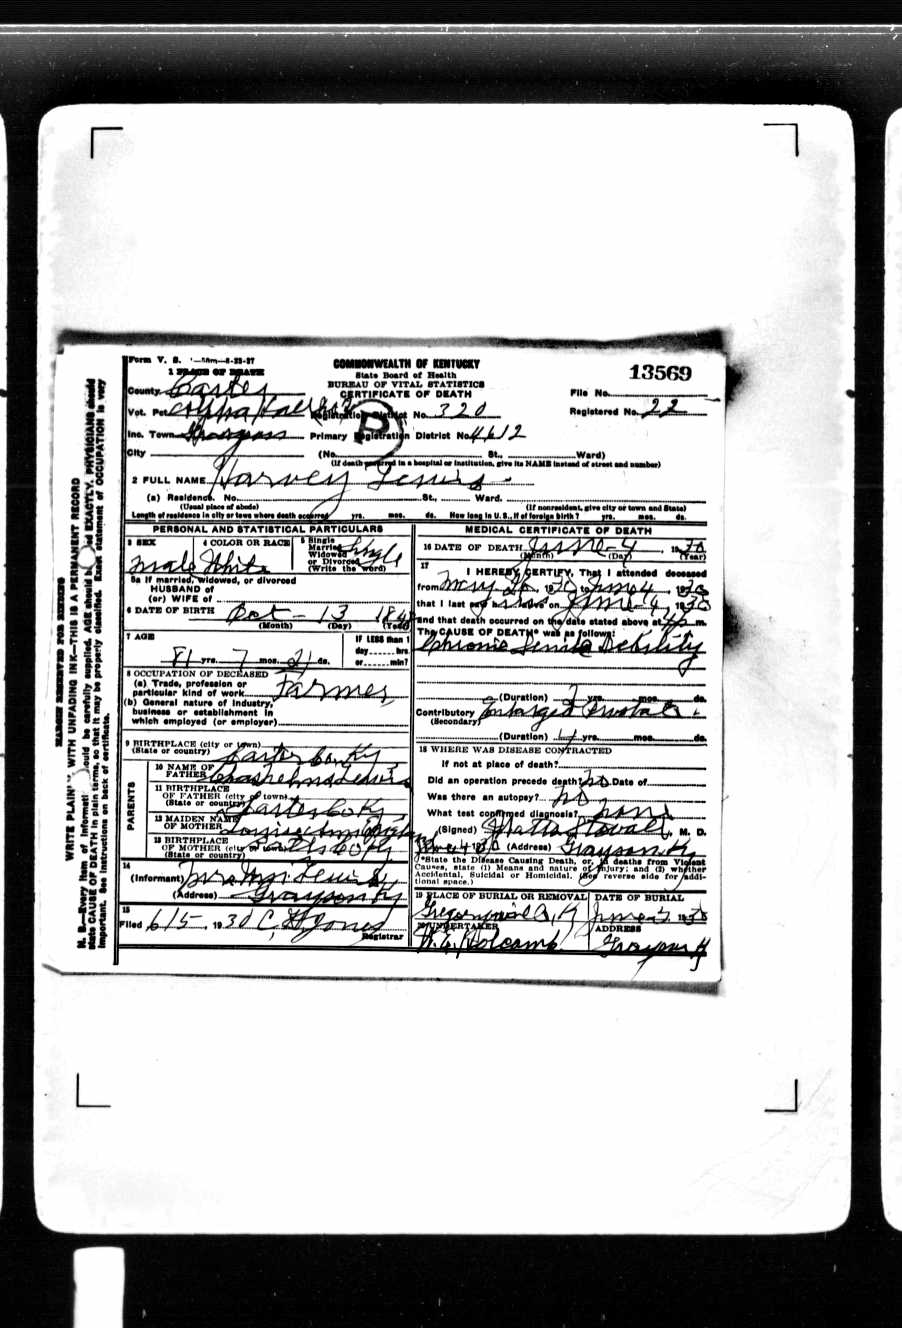 Form V. S. 1—50m—8-23-27
COMMONWEALTH OF KENTUCKY
State Board of Health
BUREAU OF VITAL STATISTICS
CERTIFICATE OF DEATH
13569
1 PLACE OF DEATH
County Carter
File No.
Vot. Pct. Registration District No. 320
Registered No. 22
Inc. Town Grayson Primary Registration District No. 4612
City (No. St., Ward)
(If death occurred in a hospital or institution, give its NAME instead of street and number)
2 FULL NAME Harvey Lewis
(a) Residence. No. St., Ward.
(Usual place of abode) (If nonresident, give city or town and State)
Length of residence in city or town where death occurred yrs. mos. ds. How long in U. S., if of foreign birth? yrs. mos. ds.
PERSONAL AND STATISTICAL PARTICULARS
3 SEX
Male
4 COLOR OR RACE
White
5 Single
Married
Widowed
or Divorced
(Write the word)
Single
5a If married, widowed, or divorced
HUSBAND of
(or) WIFE of
6 DATE OF BIRTH Oct 13 1848
(Month) (Day) (Year)
7 AGE
81 yrs. 7 mos. 21 ds.
IF LESS than 1
day hrs.
or min?
8 OCCUPATION OF DECEASED
(a) Trade, profession or
particular kind of work Farmer
(b) General nature of industry,
business or establishment in
which employed (or employer)
9 BIRTHPLACE (city or town)
(State or country) Carter Co Ky
PARENTS
10 NAME OF
FATHER Lewis
11 BIRTHPLACE
OF FATHER (city or town)
(State or country) Carter Co Ky
12 MAIDEN NAME
OF MOTHER
13 BIRTHPLACE
OF MOTHER (city or town)
(State or country) Carter Co Ky
14
(Informant) Lewis
(Address) Grayson Ky
15
Filed 6/5 1930 C. H. Jones
Registrar
MEDICAL CERTIFICATE OF DEATH
16 DATE OF DEATH June 4 1930
(Month) (Day) (Year)
17
I HEREBY CERTIFY, That I attended deceased
from May 1930 to June 4 1930
that I last saw alive on June 4, 1930
and that death occurred on the date stated above at m.
The CAUSE OF DEATH* was as follows:
Chronic Senile Debility
(Duration) yrs. mos. ds.
Contributory Enlarged Prostate
(Secondary)
(Duration) yrs. mos. ds.
18 WHERE WAS DISEASE CONTRACTED
If not at place of death?
Did an operation precede death? no Date of
Was there an autopsy? no
What test confirmed diagnosis?
(Signed) Stovall, M. D.
(Address) Grayson Ky
*State the Disease Causing Death, or, in deaths from Violent
Causes, state (1) Means and nature of Injury; and (2) whether
Accidental, Suicidal or Homicidal. (See reverse side for addi-
tional space.)
19 PLACE OF BURIAL OR REMOVAL
DATE OF BURIAL
June 1930
20 UNDERTAKER
Holcomb
ADDRESS
Grayson K
MARGIN RESERVED FOR BINDING
WRITE PLAINLY WITH UNFADING INK—THIS IS A PERMANENT RECORD
N. B.—Every item of informati ould be carefully supplied. AGE should b ed EXACTLY. PHYSICIANS should
state CAUSE OF DEATH in plain terms, so that it may be properly classified. Exact statement of OCCUPATION is very
important. See instructions on back of certificate.